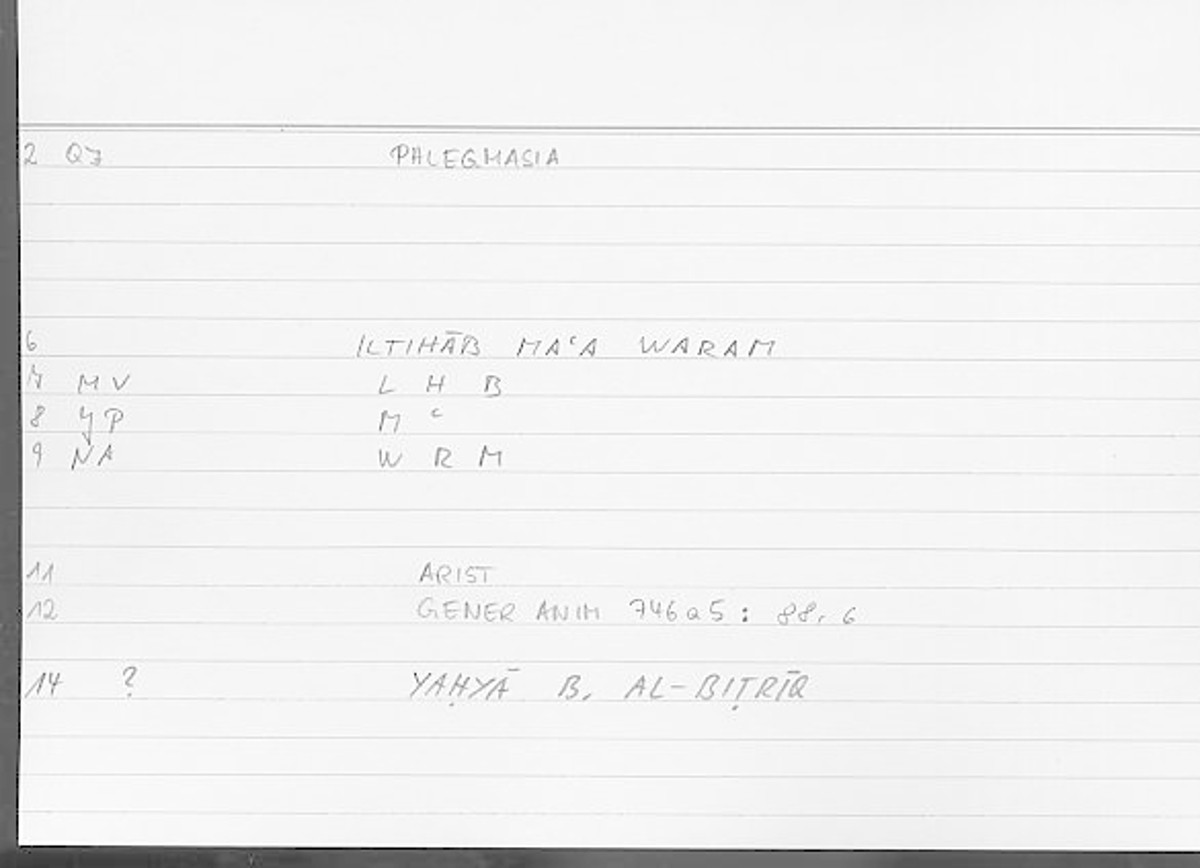 2 QJ PHLEGMASIA
6 ILTIHĀB MAʿA WARAM
7 MV L H B
8 YP M ʿ
9 NA W R M
11 ARIST
12 GENER ANIM 746a5: 88,6
14 ? YAḤYĀ B. AL-BIṬRĪQ